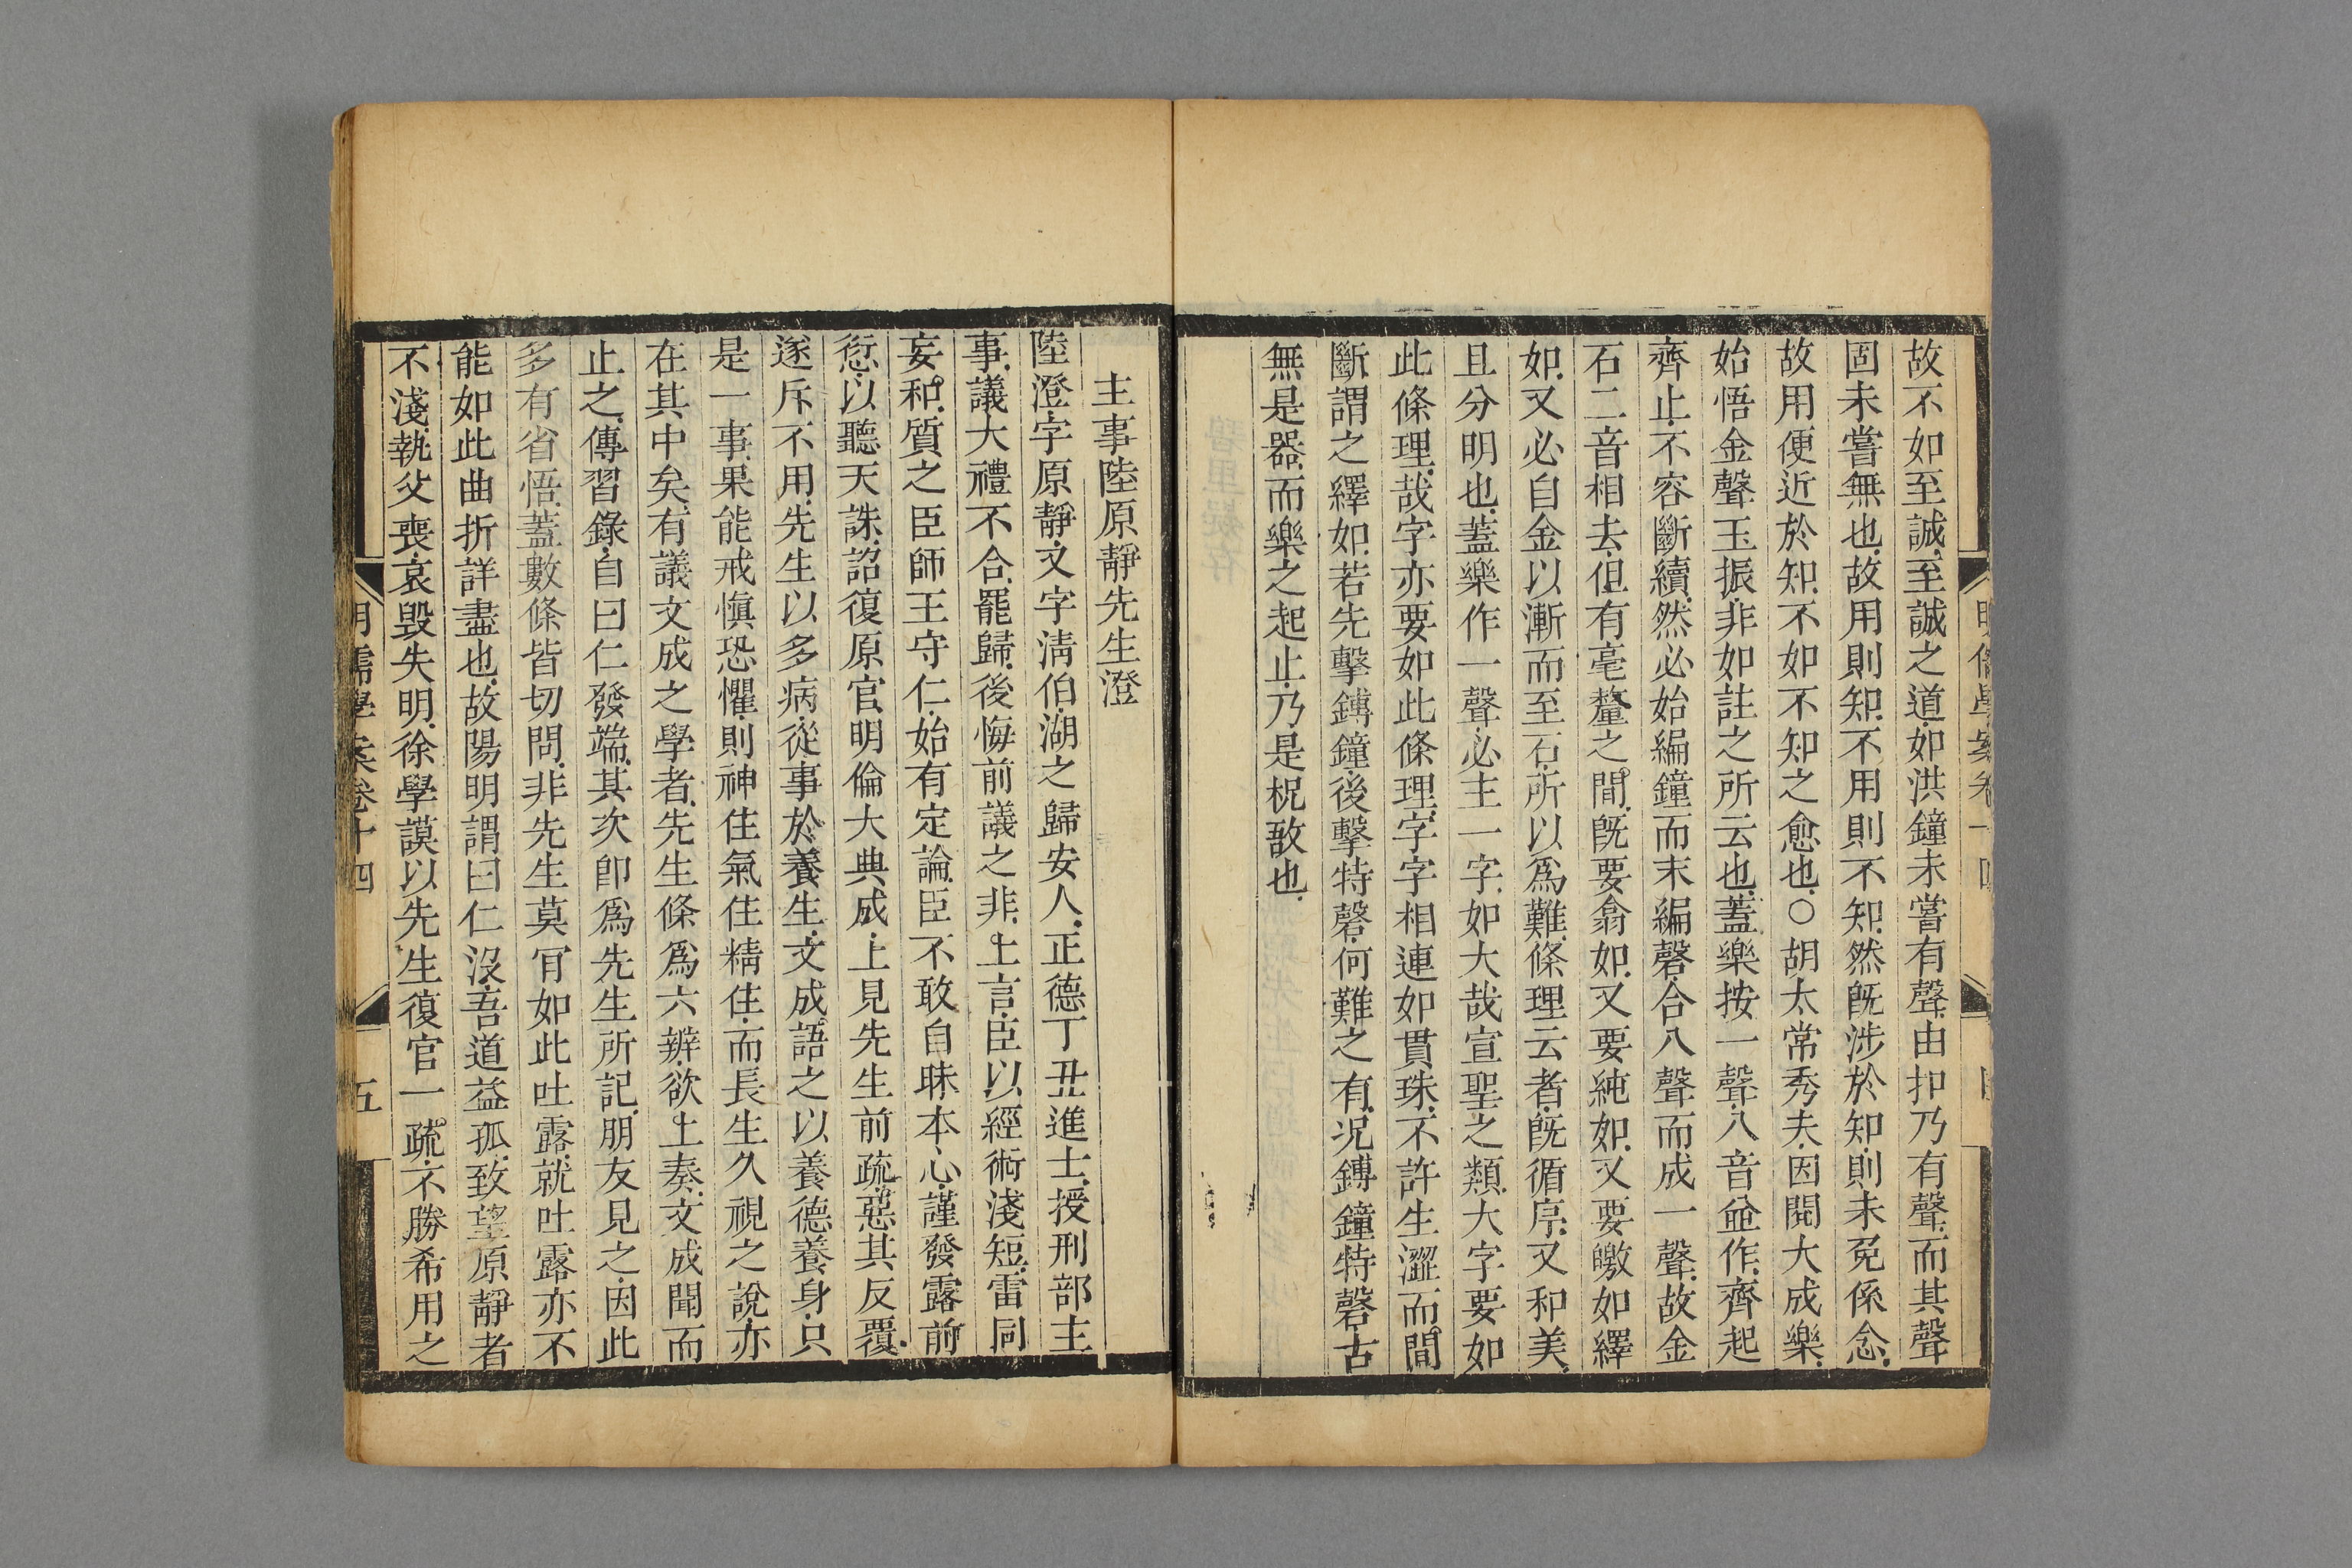 故不如至誠至誠之道如洪鐘未嘗有聲由扣乃有聲而其聲
固未嘗無也故用則知不用則不知然旣涉於知則未免係念
故用便近於知不如不知之愈也○胡太常秀夫因閱大成樂
始悟金聲玉振非如註之所云也蓋樂按一聲八音並作齊起
齊止不容斷續然必始編鐘而末編磬合八聲而成一聲故金
石二音相去但有毫釐之間旣要翕如又要純如又要皦如繹
如又必自金以漸而至石所以爲難條理云者旣循序又和美
且分明也蓋樂作一聲必主一字如大哉宣聖之類大字要如
此條理哉字亦要如此條理字字相連如貫珠不許生澀而間
斷謂之繹如若先擊鎛鐘後擊特磬何難之有况鎛鐘特磬古
無是器而樂之起止乃是柷敔也
主事陸原靜先生澄
陸澄字原靜又字淸伯湖之歸安人正德丁丑進士授刑部主
事議大禮不合罷歸後悔前議之非上言臣以經術淺短雷同
妄和質之臣師王守仁始有定論臣不敢自昧本心謹發露前
愆以聽天誅詔復原官明倫大典成上見先生前疏惡其反覆
遂斥不用先生以多病從事於養生文成語之以養德養身只
是一事果能戒愼恐懼則神住氣住精住而長生久視之說亦
在其中矣有議文成之學者先生條爲六辨欲上奏文成聞而
止之傳習錄自曰仁發端其次卽爲先生所記朋友見之因此
多有省悟蓋數條皆切問非先生莫肎如此吐露就吐露亦不
能如此曲折詳盡也故陽明謂曰仁沒吾道益孤致望原靜者
不淺執父喪哀毀失明徐學謨以先生復官一疏不勝希用之
明儒學案卷十四
五